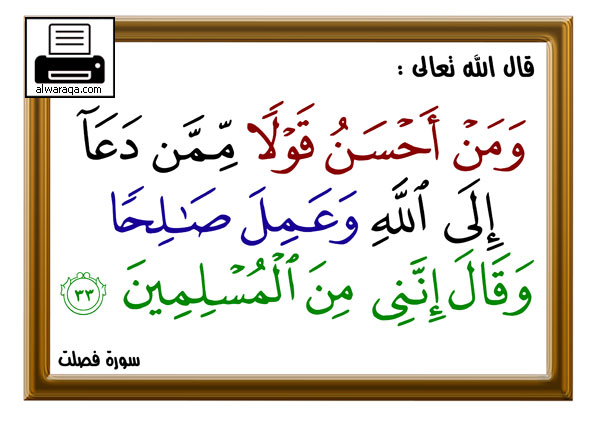 alwaraqa.com
قال الله تعالى :
وَمَنۡ أَحۡسَنُ قَوۡلٗا مِّمَّن دَعَآ
إِلَى ٱللَّهِ وَعَمِلَ صَٰلِحٗا
وَقَالَ إِنَّنِي مِنَ ٱلۡمُسۡلِمِينَ ٣٣
سورة فصلت